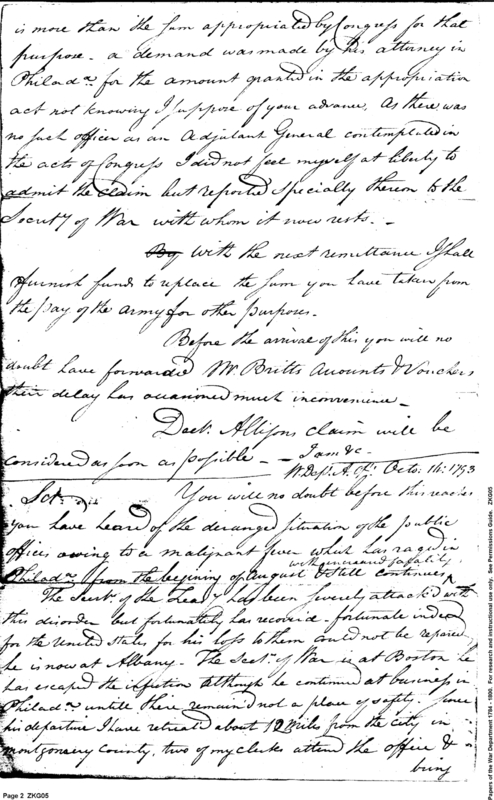 is more than the sum appropriated by Congress for that
purpose - a demand was made by his attorney in
Philada. for the amount granted in the appropriation
act not knowing I suppose of your advance, As there was
no such officer as an Adjutant General contemplated in
the acts of Congress I did not feel myself at liberty to
admit the claim but reported specially thereon to the
Secrety of War with whom it now rests. -
By with the next remittance I shall
furnish funds to replace the sum you have taken from
the pay of the army for other purposes.
Before the arrival of this you will no
doubt have forwarded Mr Britts Accounts & Vouchers
their delay has occasioned much inconvenience -
Doctr. Allisons claim will be
considered as soon as possible - I am &c -
W. Dept. A. Octo. 14: 1793
You will no doubt before this reaches
you have heard of the deranged situation of the public
offices owing to a malignant fever which has raged in
with unusual fatality
Philada. from the begining of August & still continues
The Secrt. of the Treay has been severely attackd with
this disorder but fortunately has recoverd - fortunate indeed
for the united states for his loss to them could not be repaired
he is now at Albany - The Sect. of War is at Boston he
has escaped the infection although he continued at business in
Philada. untill there remaind not a place of safety. Since
his departure I have retreated about 12 miles from the City in
montgomery County, two of my clerks attend the office &
bring
Page 2 ZKG05
Papers of the War Department 1784 - 1800. For research and instructional use only. See Permissions Guide. ZKG05